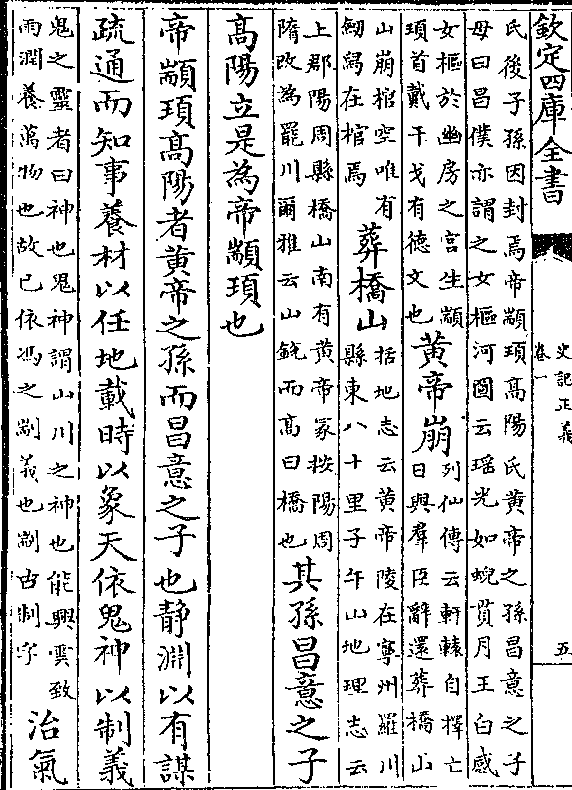 欽定四庫全書
史記正義
卷一
五
氏後子孫因封焉帝顓頊髙陽氏黄帝之孫昌意之子
母曰昌僕亦謂之女樞河圖云瑤光如蜺貫月王白感
女樞於幽房之宫生顓
頊首戴干戈有德文也
黄帝崩
列仙傳云軒轅自擇亡
日與羣臣辭還葬橋山
山崩棺空唯有
劒舄在棺焉
葬橋山
括地志云黄帝陵在寧州羅川
縣東八十里子午山地理志云
上郡陽周縣橋山南有黄帝冢按陽周
隋改為羅川爾雅云山銳而髙曰橋也
其孫昌意之子
髙陽立是為帝顓頊也
帝顓頊髙陽者黄帝之孫而昌意之子也静淵以有謀
疏通而知事養材以任地載時以象天依鬼神以制義
鬼之靈者曰神也鬼神謂山川之神也能興雲致
雨潤養萬物也故已依馮之剬義也剬古制字
治氣